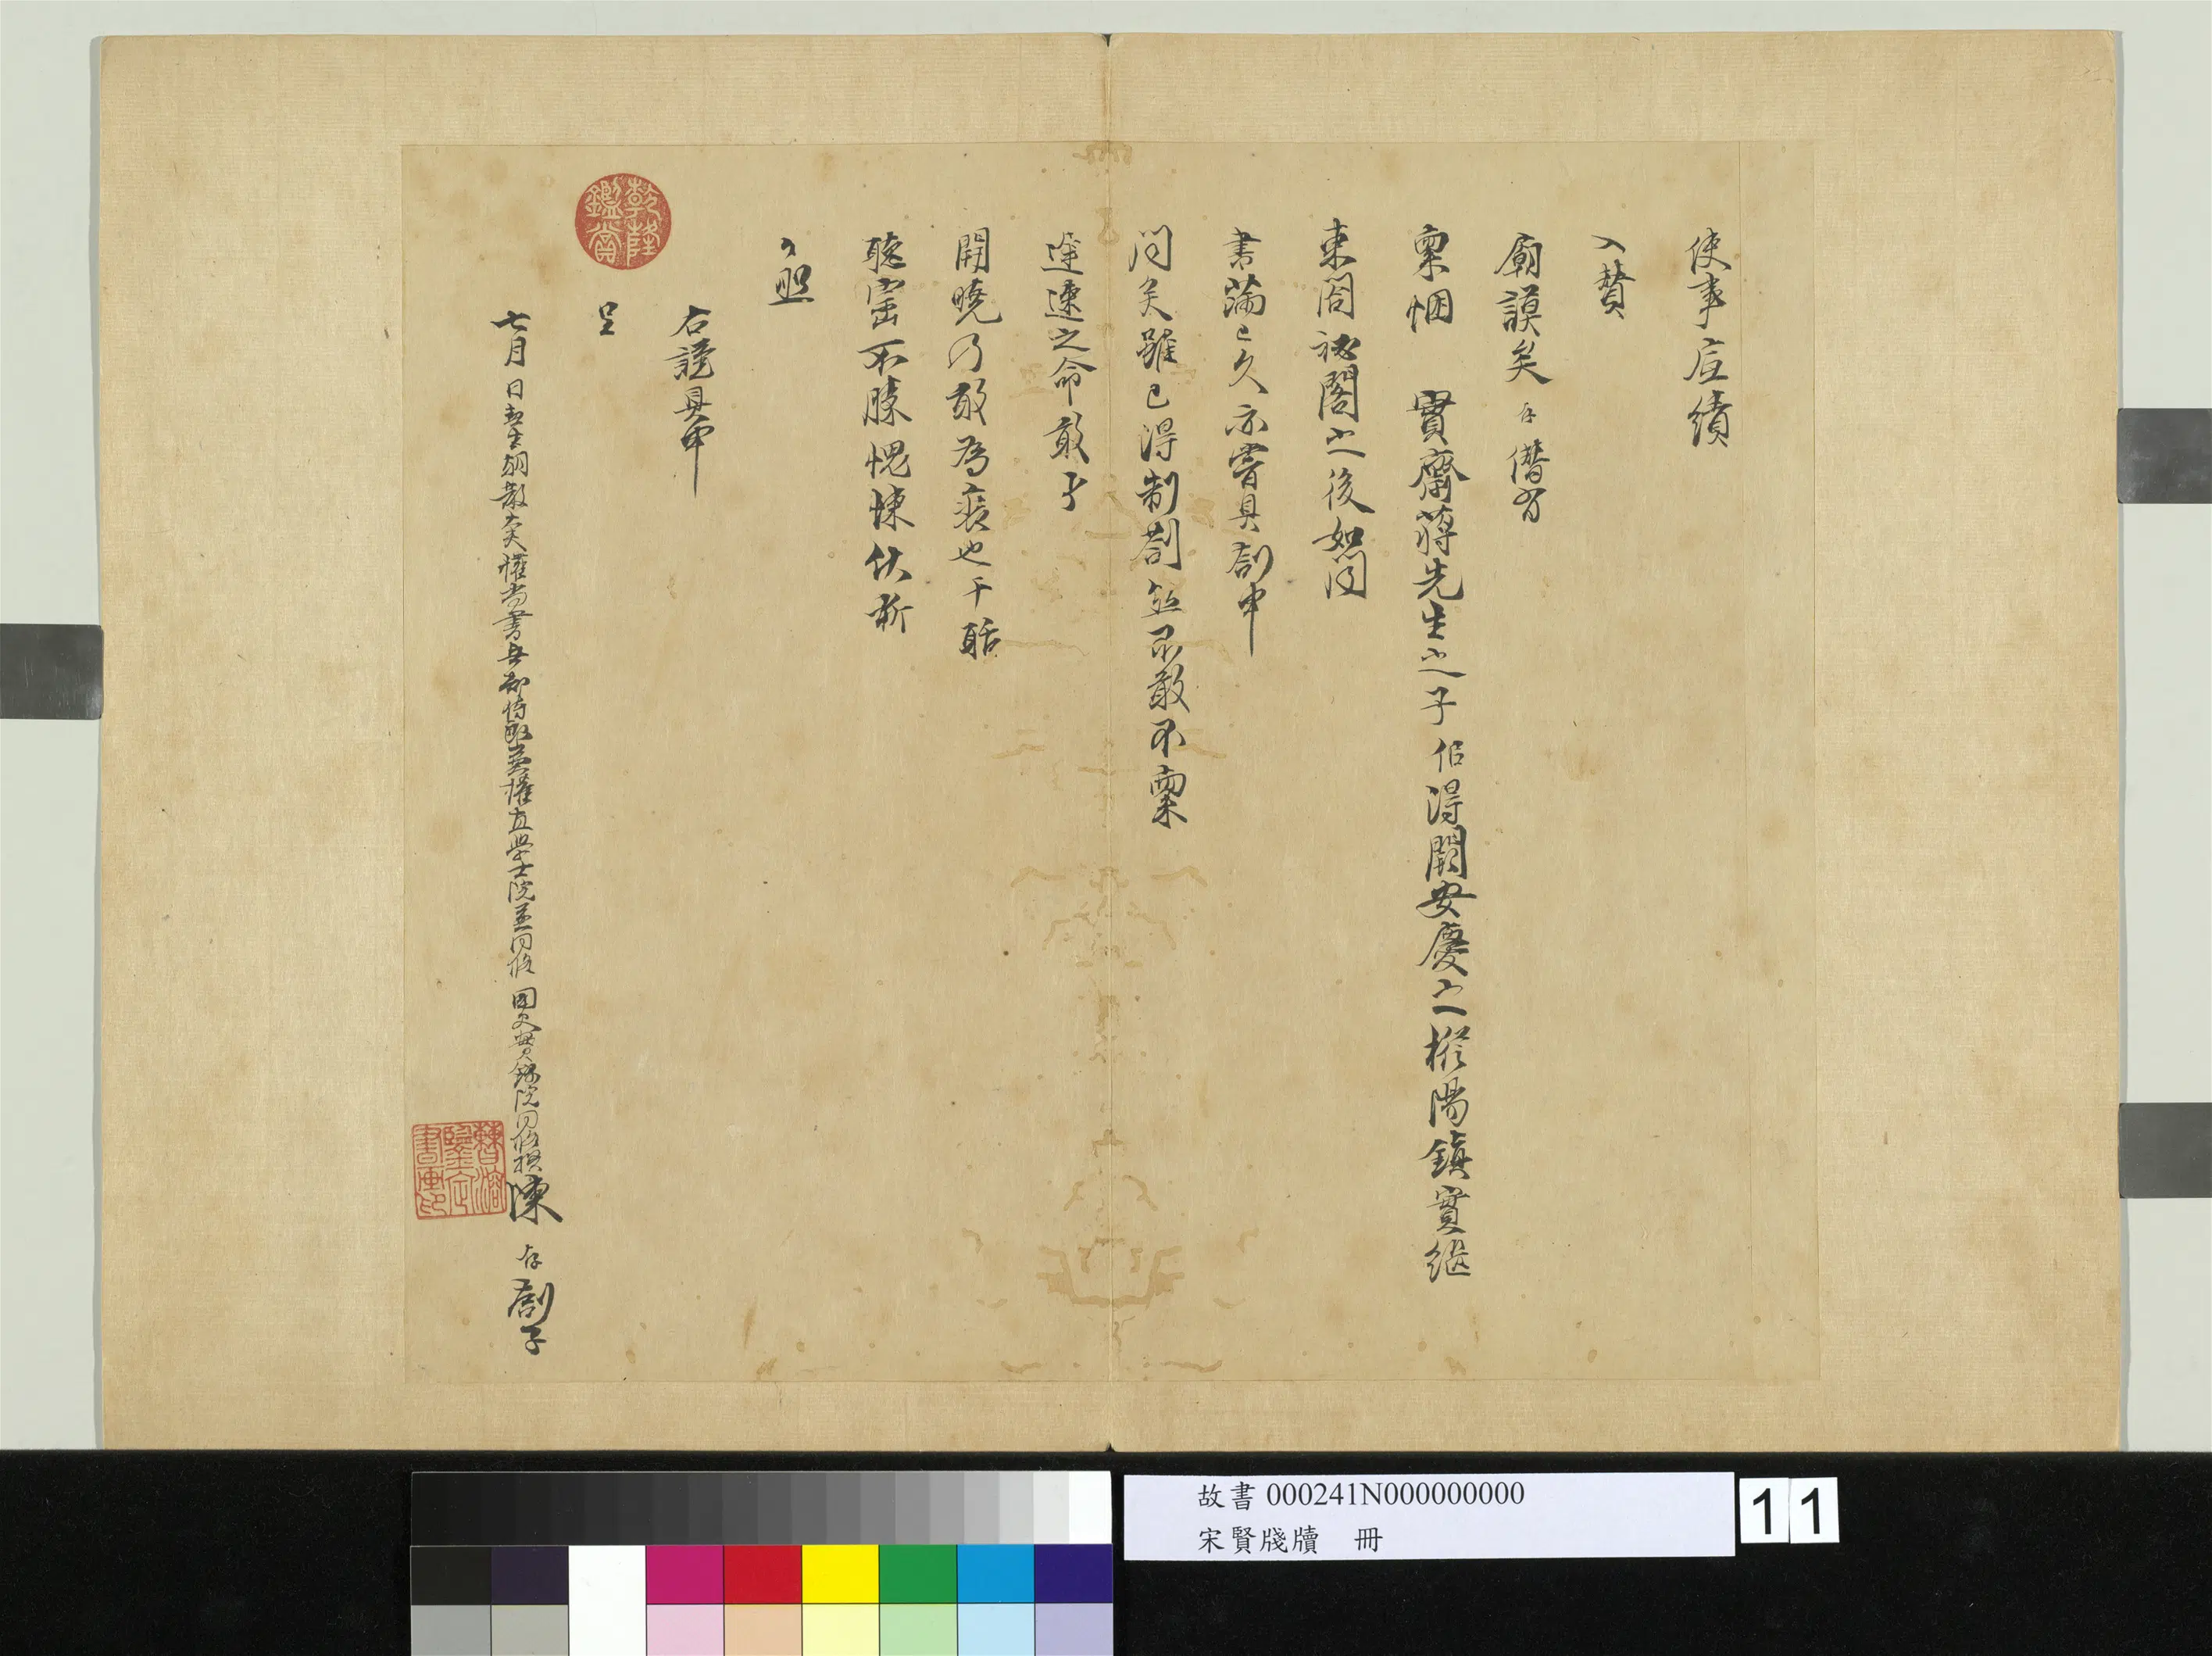 使事底績
入贊
廟謨矣存僭有
稟悃 實齋蔣先生之子佀得闕安慶之樅陽鎮實繼
東閣祕閣之後如聞
書滿已久亦嘗具劄申
聞矣雖已得制劄然不敢不稟
速之命敢予
開曉乃敢為也干聒
聽不勝愧悚伏祈
照
右謹具申
呈
七月 日朝散大夫權尚書兵部侍郎兼權直學士院兼同修 國史實錄院同修撰陳 存劄子
乾隆鑑賞
書畫印
故書 000241N000000000
宋賢牋牘 冊
11